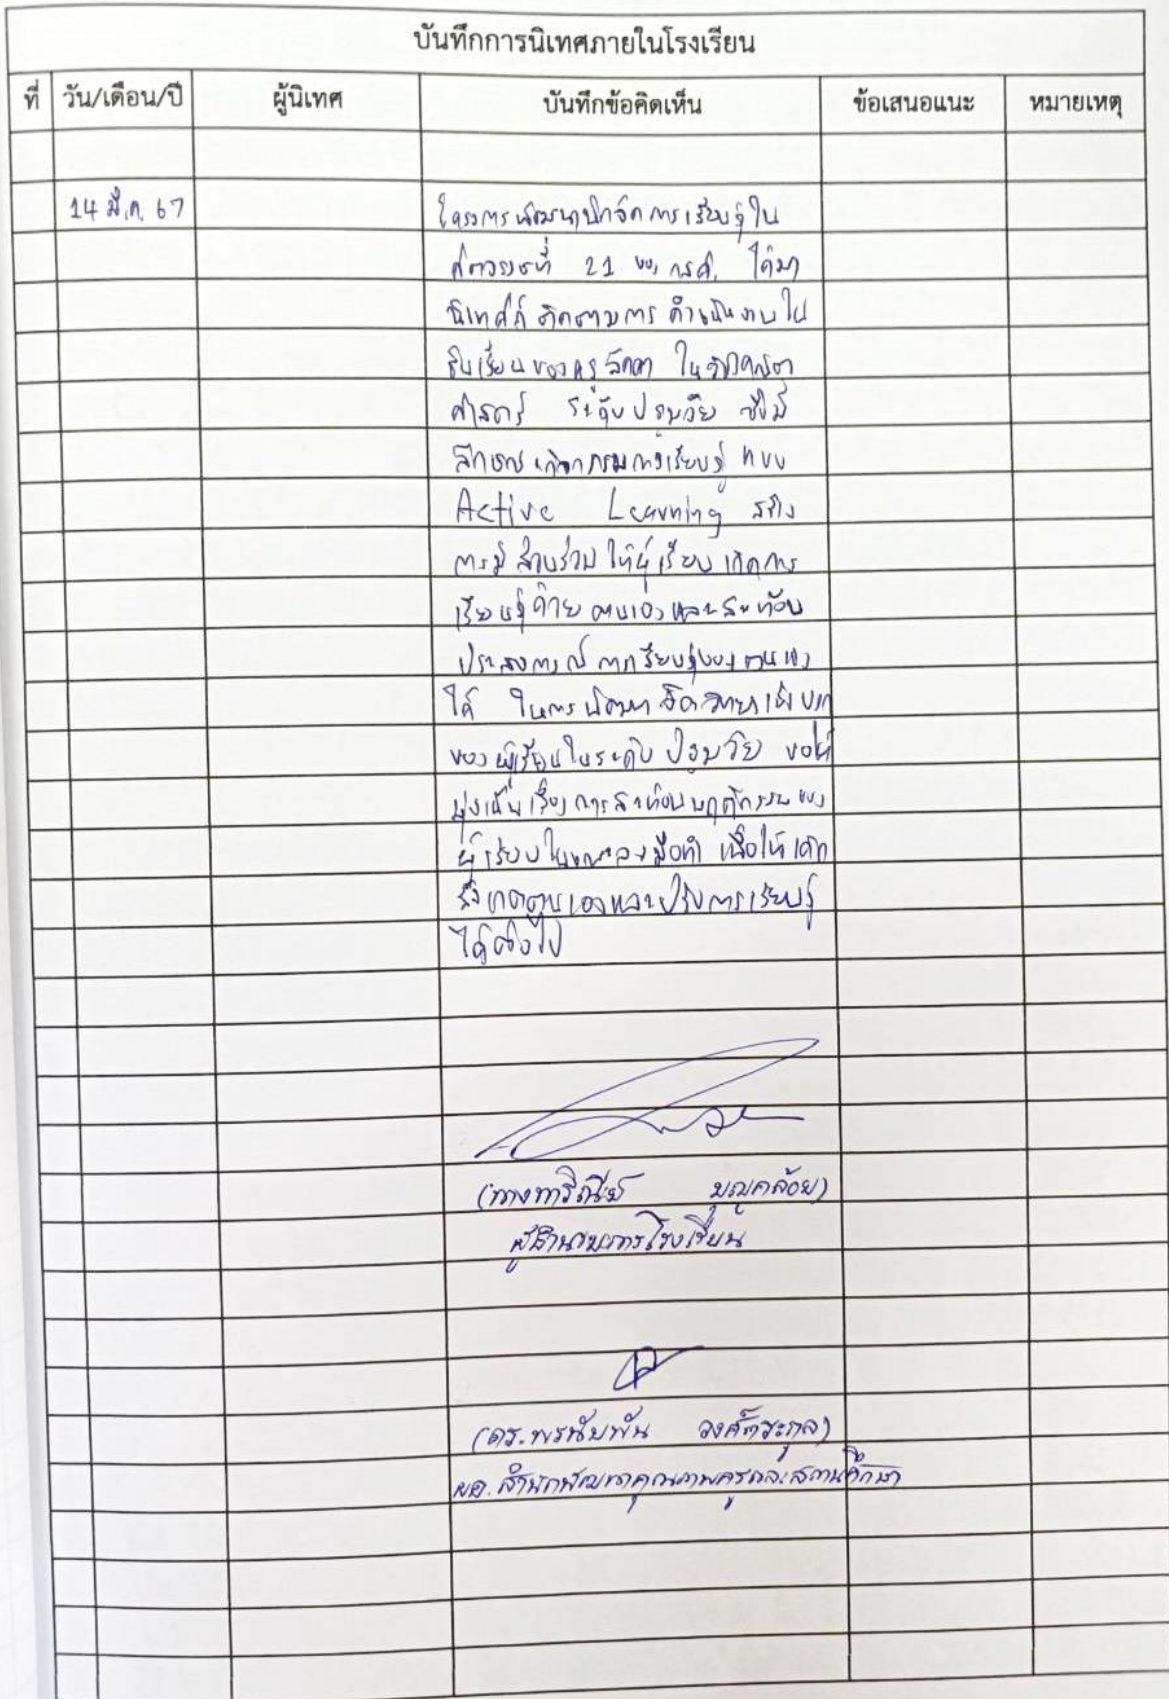 บันทึกการนิเทศภายในโรงเรียน
ที่ วัน/เดือน/ปี ผู้นิเทศ บันทึกข้อคิดเห็น ข้อเสนอแนะ หมายเหตุ
14 มี.ค. 67 โครงการพัฒนา จัดการเรียนรู้ใน
ศตวรรษที่ 21 ของ กสศ. ได้มา
นิเทศ ติดตามการดำเนินงานใน
ชั้นเรียนของครู ใน
ศาสตร์ ระดับปฐมวัย ซึ่งมี
ลักษณะกิจกรรมการเรียนรู้แบบ
Active Learning สร้าง
การมีส่วนร่วมให้ผู้เรียนเกิดการ
เรียนรู้ด้วยตนเองและสะท้อน
ประสบการณ์การเรียนรู้ของตนเอง
ได้ ในการพัฒนาจิตวิทยาเชิงบวก
ของผู้เรียนในระดับปฐมวัย ขอให้
มุ่งเน้นเรื่องการสะท้อนพฤติกรรมของ
ผู้เรียนในขณะลงมือทำ เพื่อให้เด็ก
สังเกตตนเองและปรับการเรียนรู้
ได้ต่อไป
บุญคล้อย)
ผู้อำนวยการโรงเรียน
(ดร. วงศ์ตระกูล)
ผอ.สำนักพัฒนาคุณภาพครูและสถานศึกษา